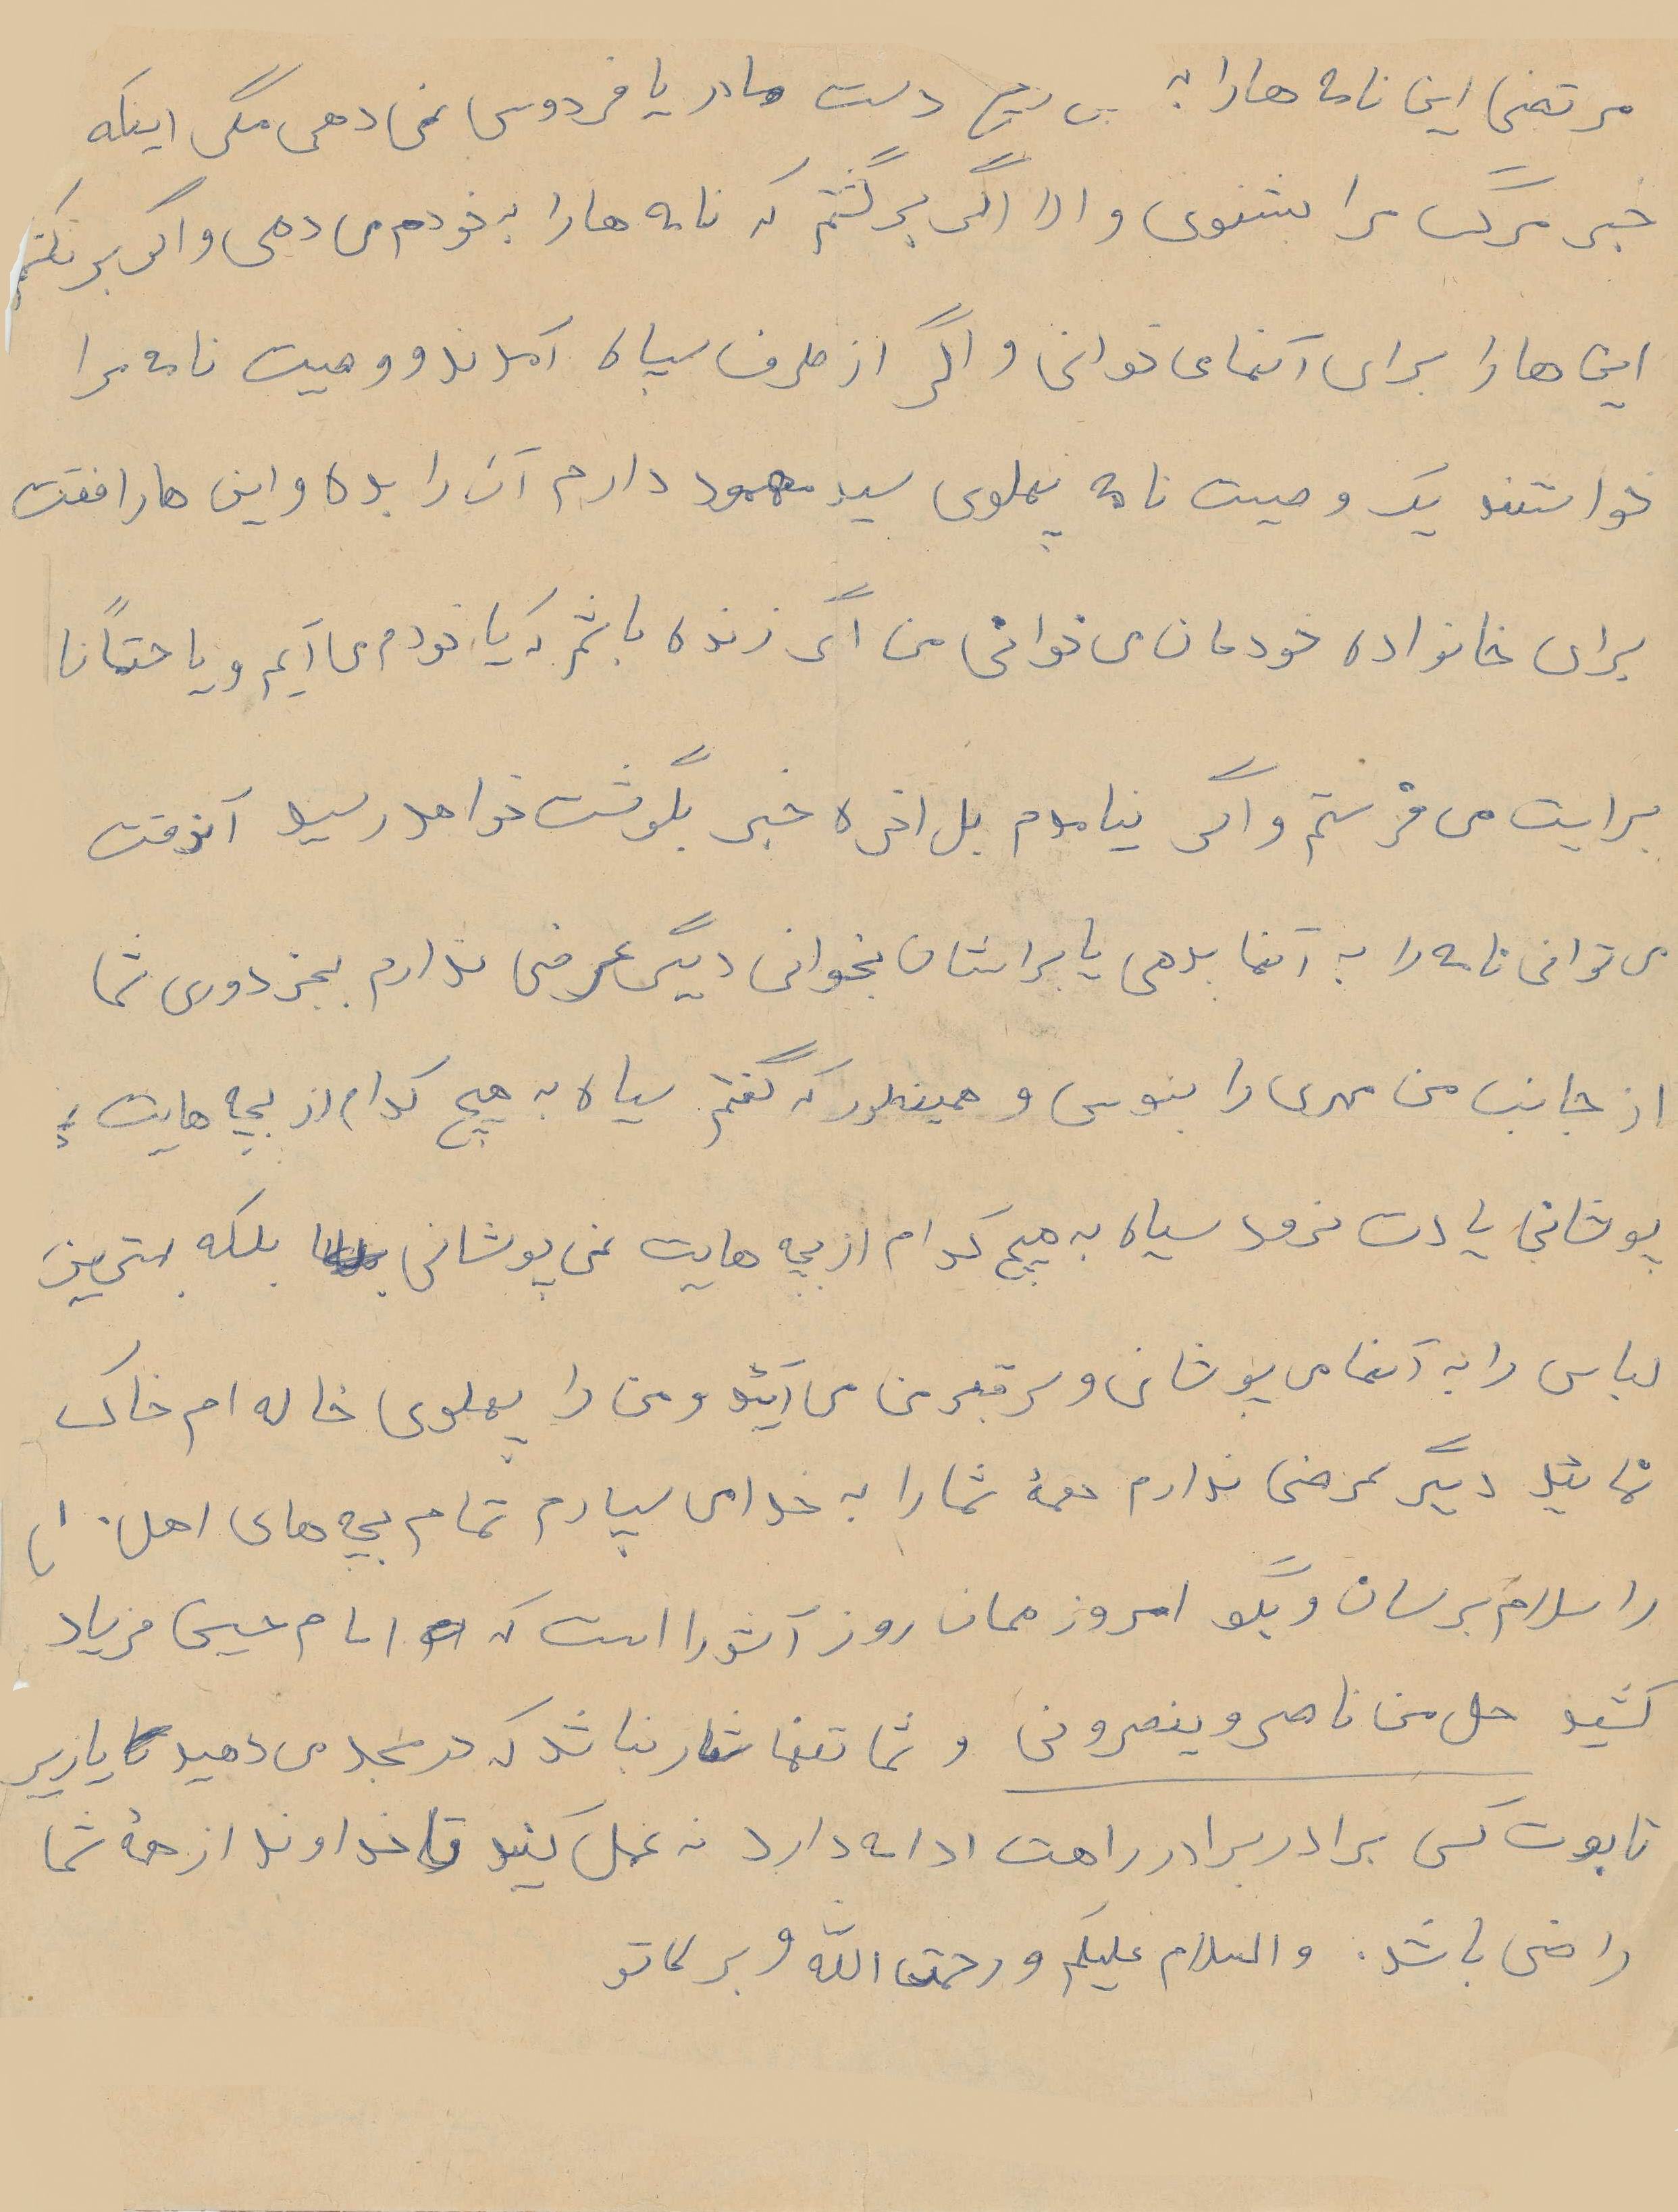 مرتضی این نامه ها را به هیچ دست مادر یا فردوسی نمی دهی مگر اینکه
خبر مرگ مرا بشنوی و الا اگر برگشتم که نامه ها را به خودم می دهی و اگر برنگشتم
این ها را برای آنها می خوانی و اگر از طرف سپاه آمدند و وصیت نامه مرا
خواستند یک وصیت نامه پهلوی سید محمود دارم آن را بده و این ها را فقت
برای خانواده خودمان می خوانی من اگر زنده باشم که یا خودم می آیم و یا حتماً نا
برایت می فرستم و اگر نیامدم بل اخره خبر بگوشت خواهد رسید آنوقت
می توانی نامه را به آنها بدهی یا برایشان بخوانی دیگر عرضی ندارم بجز دوری شما
از جانب من مهری را ببوسی و همینطور که گفتم سیاه به هیچ کدام از بچه هایت
پوشانی یادت نرود سیاه به هیچ کدام از بچه هایت نمی پوشانی بلکه بهترین
لباس را به آنها می پوشانی و سر قبر من می آئید و من را پهلوی خاله ام خاک
نمائید دیگر عرضی ندارم همهٔ شما را به خدا می سپارم تمام بچه های اهل
را سلام برسان و بگو امروز همان روز آشورا است که امام حسین فریاد
کشید حل من ناصر و ینصرونی و شما تنها شعار نباشد که در مسجد می دهید یا زیر
تابوت کسی برادر برادر راهت ادامه دارد نه عمل کنید تا خداوند از همهٔ شما
راضی باشد. والسلام علیکم و رحمت الله و برکاتو